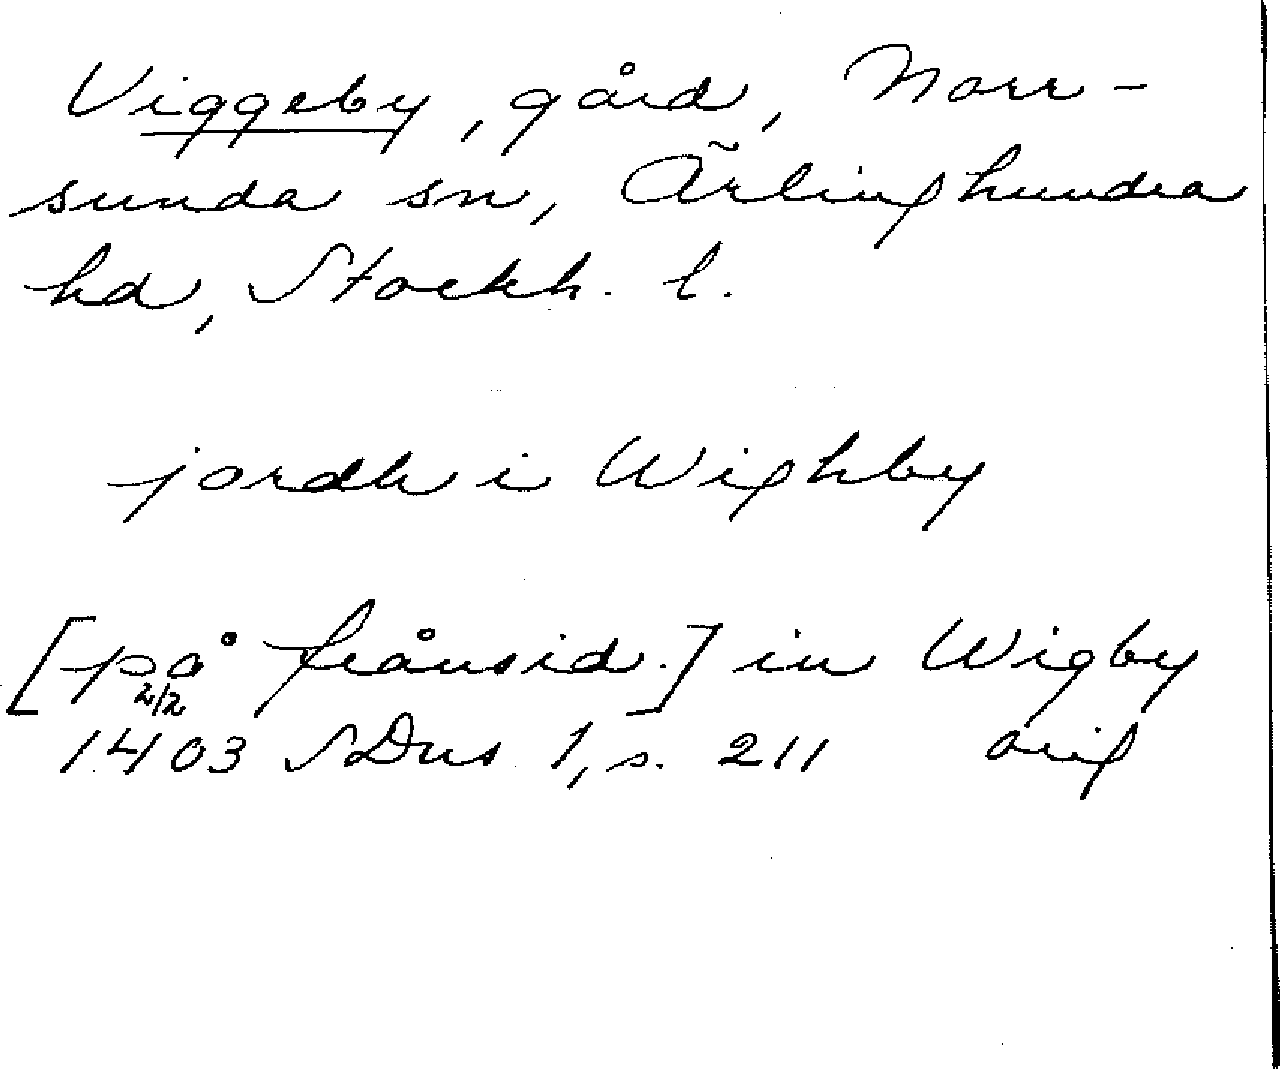 Viggeby, gård, Norr-
sunda sn, Ärlinghundra
hd, Stockh. l.
jordh i Wighby
[på frånsid.] in Wigby
2/2
1403 SDns 1, s. 211 orig